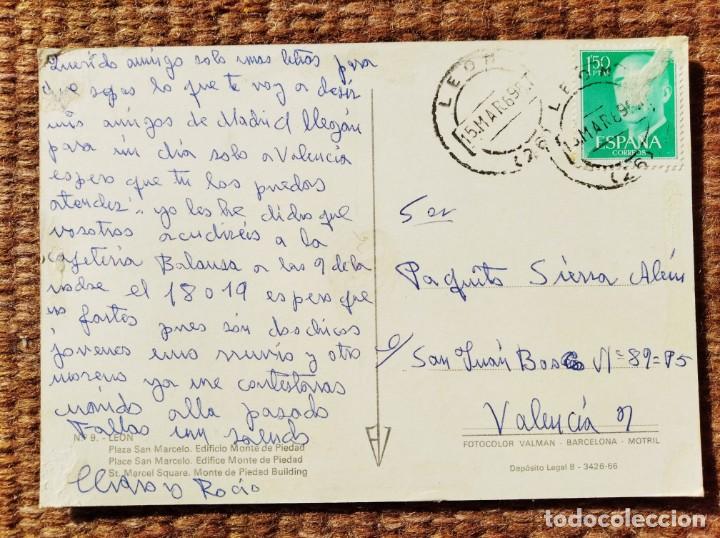 Querido amigo solo unas letras para
que sepas lo que te voy a desir
mis amigos de Madrid llegan
para un dia solo a Valencia
espero que tu los puedas
atender yo les he dicho que
vosotros acudireis a la
cafeteria Balansa a las 9 de la
el 18 o 19 espero que
no fartes pues son dos chicos
jovenes uno ruvio y otro
moreno ya me contestaras
cuando alla pasado
Fallas un saludo
Rocio
Nº 9. - LEON
Plaza San Marcelo. Edificio Monte de Piedad
Place San Marcelo. Edifice Monte de Piedad
St. Marcel Square. Monte de Piedad Building
LEON
15 MAR 69
(26)
LEON
15 MAR 69
(26)
1'50
PTS
ESPAÑA
CORREOS
Sor
Paquito Sierra
c/ San Juán Bosco Nº=89=P5
Valencia
FOTOCOLOR VALMAN - BARCELONA - MOTRIL
Depósito Legal B - 3426-66
todocoleccion.net